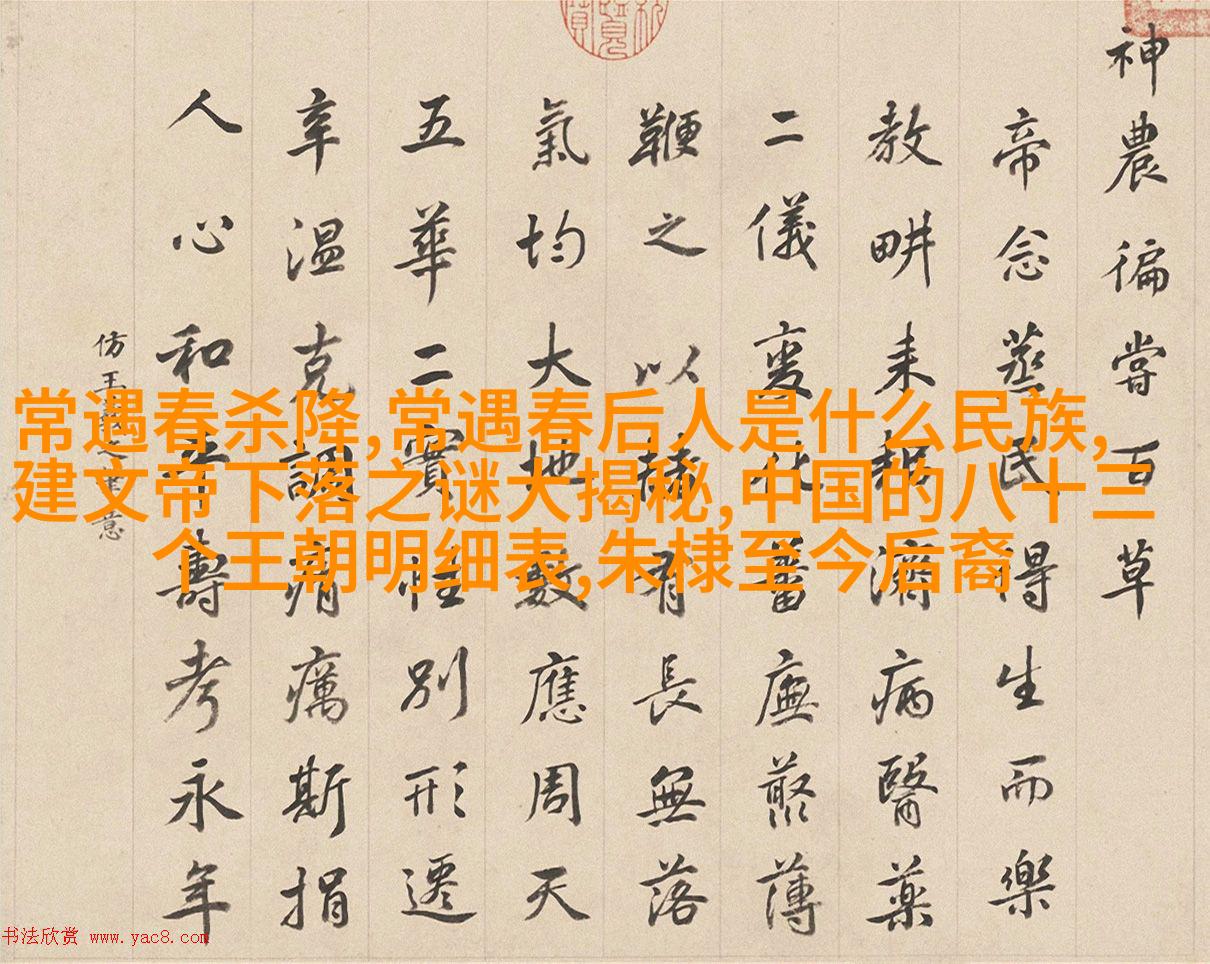 神農徧嘗百草
帝念蒸民得生而樂
教畊耒耨濟病醫藥
二儀變化蕃廡藂薄
鞭之以赭有長無落
氣均大地數應周天
五華二實惟別形遷
辛温克調痟癘斯捐
人心和平壽考永年
仿王羲之筆意
常遇春杀降,常遇春后人是什么民族,
建文帝下落之谜大揭秘,中国的八十三
个王朝明细表,朱棣至今后裔
书法欣赏 www.yac8.com